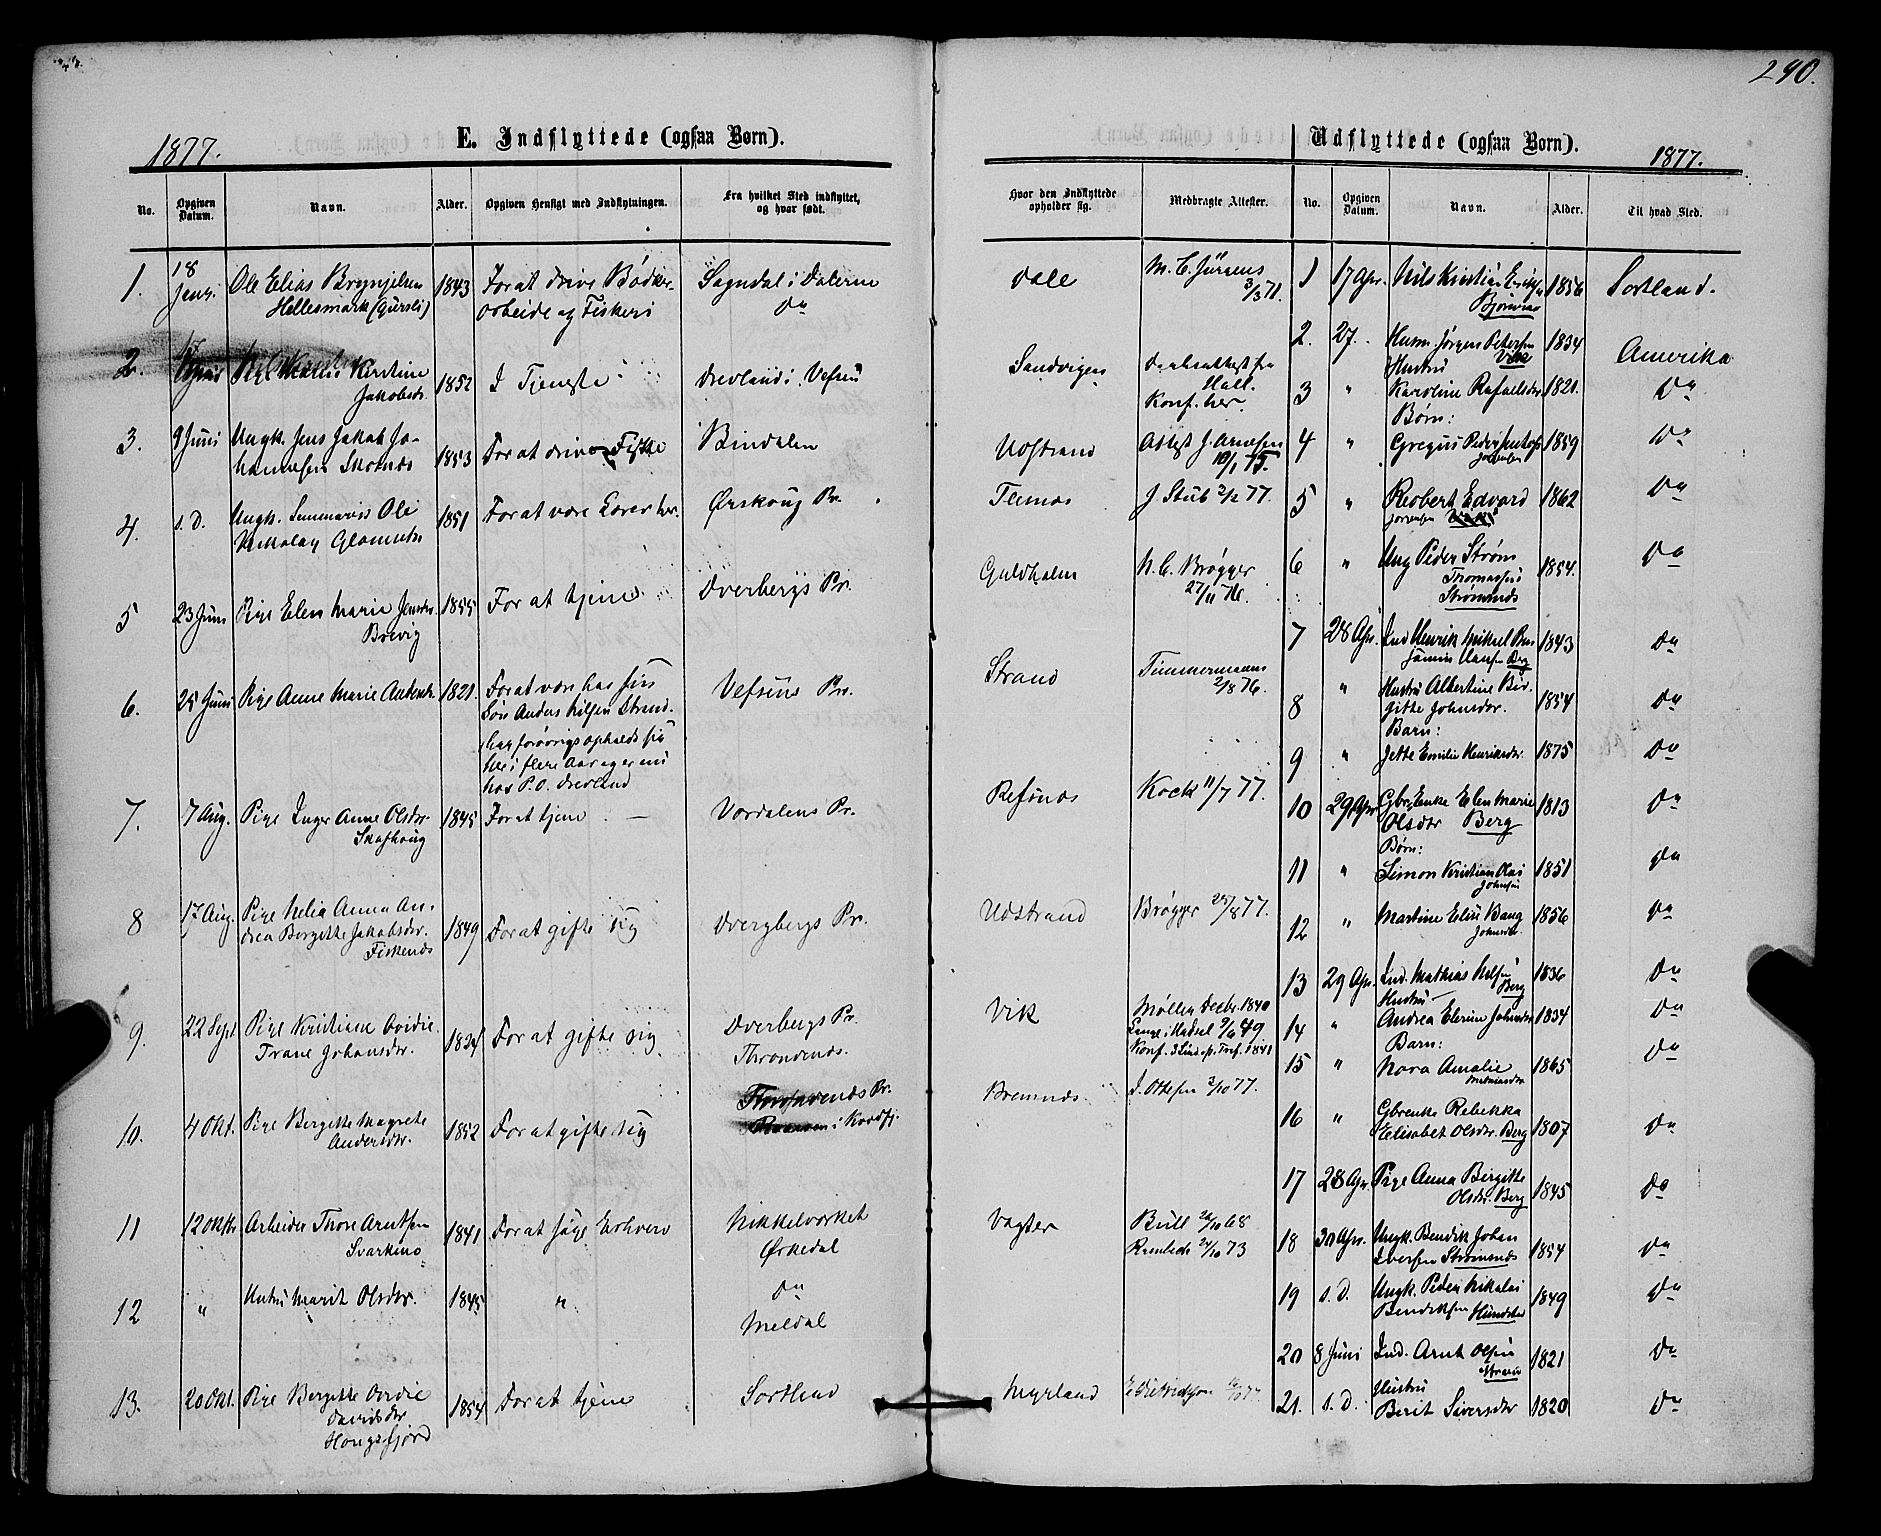 240.
1877.
E. Indflyttede (ogsaa Børn).
No.
Opgiven Datum.
Navn.
Alder.
Opgiven Hensigt med Indflytningen.
Fra hvilket Sted indflyttet, og hvor født.
1. 18 Janr. Ole Elias 1843 For at drive Bødker-
arbeide og Fiskeri
Sogndal i Dalerne
Do
2. Kirstine
Jakobsdr. 1852 I Tjeneste
Drevland i Vefsen
3. 9 Juni Ungk. Jens Jakob Jo-
hannesen 1853 For at drive Fiske
Bindalen
4. s. D. Ungk. Seminarist Ole
Nikolay 1851 For at være Lærer her.
Ørskoug Pr.
5 23 Juni Pige Elen Marie Jensdr.
Brevig 1855 For at tjene
Dverbergs Pr.
6. 25 Juni Pige Anne Marie 1821. For at være hos sin
Søn Anders Nilsen Strand.
har forøvrigt opholdt sig
her i flere Aar og er nu
hos P. O. Drevland
Vefsens Pr.
7. 7 Aug. Pige Inger Anne Olsdr.
Skafhoug 1845 For at tjene
Værdalens Pr.
8 17 Aug. Pige Nelia Anna An-
drea Bergitte Jakobsdr.
Fiskenes 1849 For at gifte sig
Dvergbergs Pr.
9. 22 Sept Pige Kristine Ovidie
Trane Johansdr. 1824 For at gifte sig
Dverbergs Pr.
Throndenes.
10. 4 Okt. Pige Bergitte Magrete
Andersdr. 1852 For at gifte sig
11 12 Oktbr Arbeider Thore Arntsen
Svarkmo 1841 For at søge Erhverv
Nikkelværket
Ørkedal
12 " Hustru Marit Olsdr. 1845 "
Do
Meldal
13. 20 Okt. Pige Bergitte Ovidie
Davidsdr.
Hougsfjord 1854 For at tjene
Sortland
Hvor den Indflyttede opholder sig.
Medbragte Attester.
Dale M. C. Jürgens
3/3 71.
Sandvigen Daabsattest fra
Konf. her.
Udstrand Attest J. Arnesen
10/1 75.
J. Stub 2/2 77.
Guldholm N. C. Brøgger
27/11 76.
Strand Timmermann
2/8 76.
Refsnæs Kock 11/7 77.
Udstrand Brøgger 25/8 77.
Vik Møller Decbr. 1840
Lange i Hadsel 9/6 49
Bremnes. J. Ottesen 3/10 77.
Vagter Bull 68
73
Myrland
Udflyttede (ogsaa Børn).
1877.
No.
Opgiven Datum.
Navn.
Alder.
Til hvad Sted.
1 17 Apr. Nils Kristian
1856 Sortland.
2. 27. Husm. Jørgen Petersen
Vik 1834 Amerika
Hustru
3 " Karoline Rafaelsdr. 1821. Do
Børn:
4 " Gregus
Jørgensen 1859 Do
5 " Robert Edvard
Jørgensen 1862 Do
6 " Ung Peder Strøm
Thomassen
Strømsnes 1854. Do
7 28 Apr. Ind. Henrik Mikael
Hansen Berg 1843 Do
8 " Hustru Albertine Bir-
gitte Johnsdr. 1854 Do
Barn:
9 " Jette Emilie Henriksdr. 1875 Do
10 29 Apr Gbr. Enke Elen Marie
Olsdr Berg 1813 Do
Børn:
11 " Simon Kristian Olai
Johnsen 1851 Do
12 " Martine Elise Bang
Johnsdr. 1856 Do
13 29 Apr. Ind. Mathias Nilsen
Berg 1836 Do
Hustru
14 " Andrea Johnsdr 1834 Do
Barn:
15 " Nora Amalie
Mathiasdr 1865 Do
16 " Gbrenke Rebekka
Elisabet Olsdr. Berg 1807 Do
17 28 Apr. Pige Anna Bergitte
Olsdr. Berg 1845 Do
18 30 Apr. Ungk. Bendik Johan
Iversen Strømsnes 1854 Do
19 s. D. Ungk. Peder Nikolai
Bendiksen 1849 Do
20 8 Juni Ind. Arnt Olsen
Strand 1821 Do
Hustru
21. s. D. Berit Siversdr 1820 Do